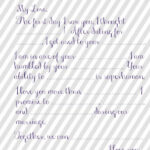 My Love,
The first day I saw you, I thought
. After dating for
, I got used to your
.
I am in awe of your . I am
humbled by your . Your
ability to is superhuman.
I love you more than . I
promise to
and during our
marriage.
Together, we can .
I love you